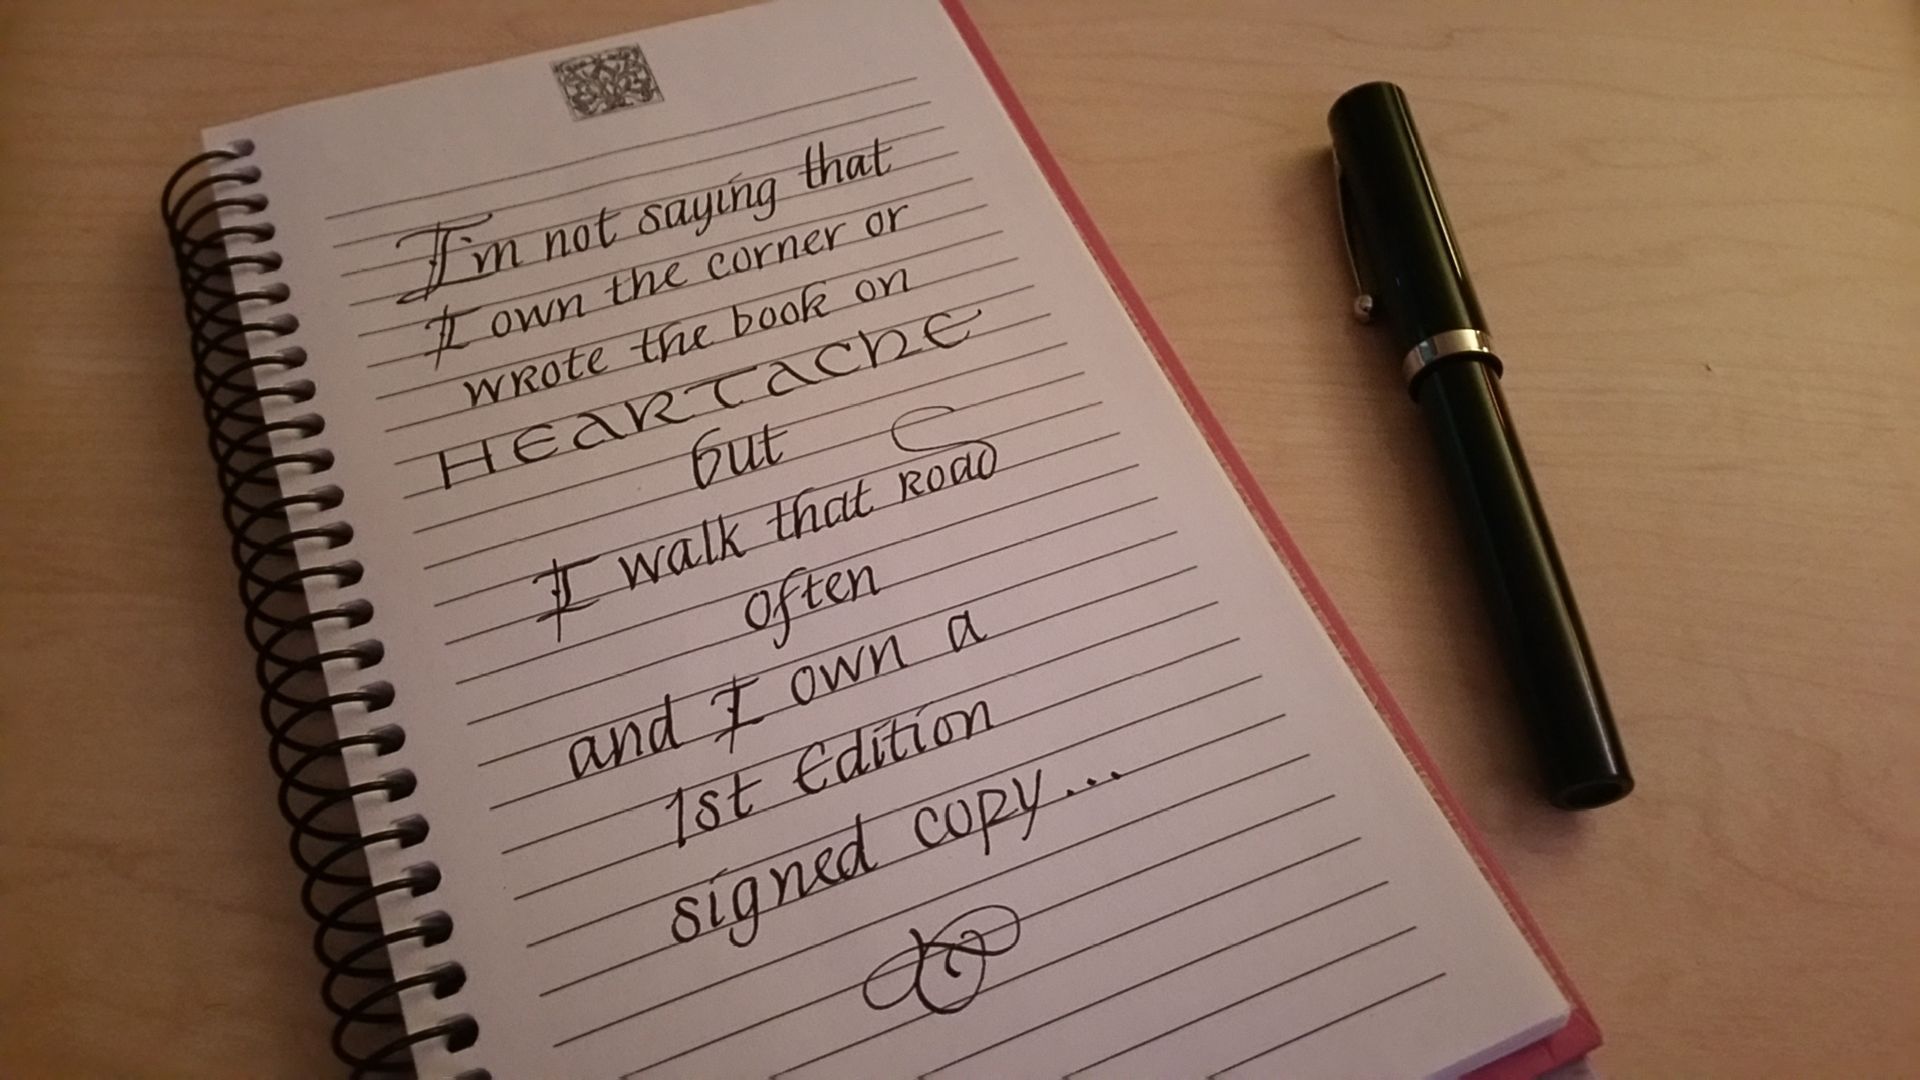 I'm not saying that
I own the corner or
wrote the book on
HEARTACHE
but
I walk that road
often
and I own a
1st Edition
signed copy...